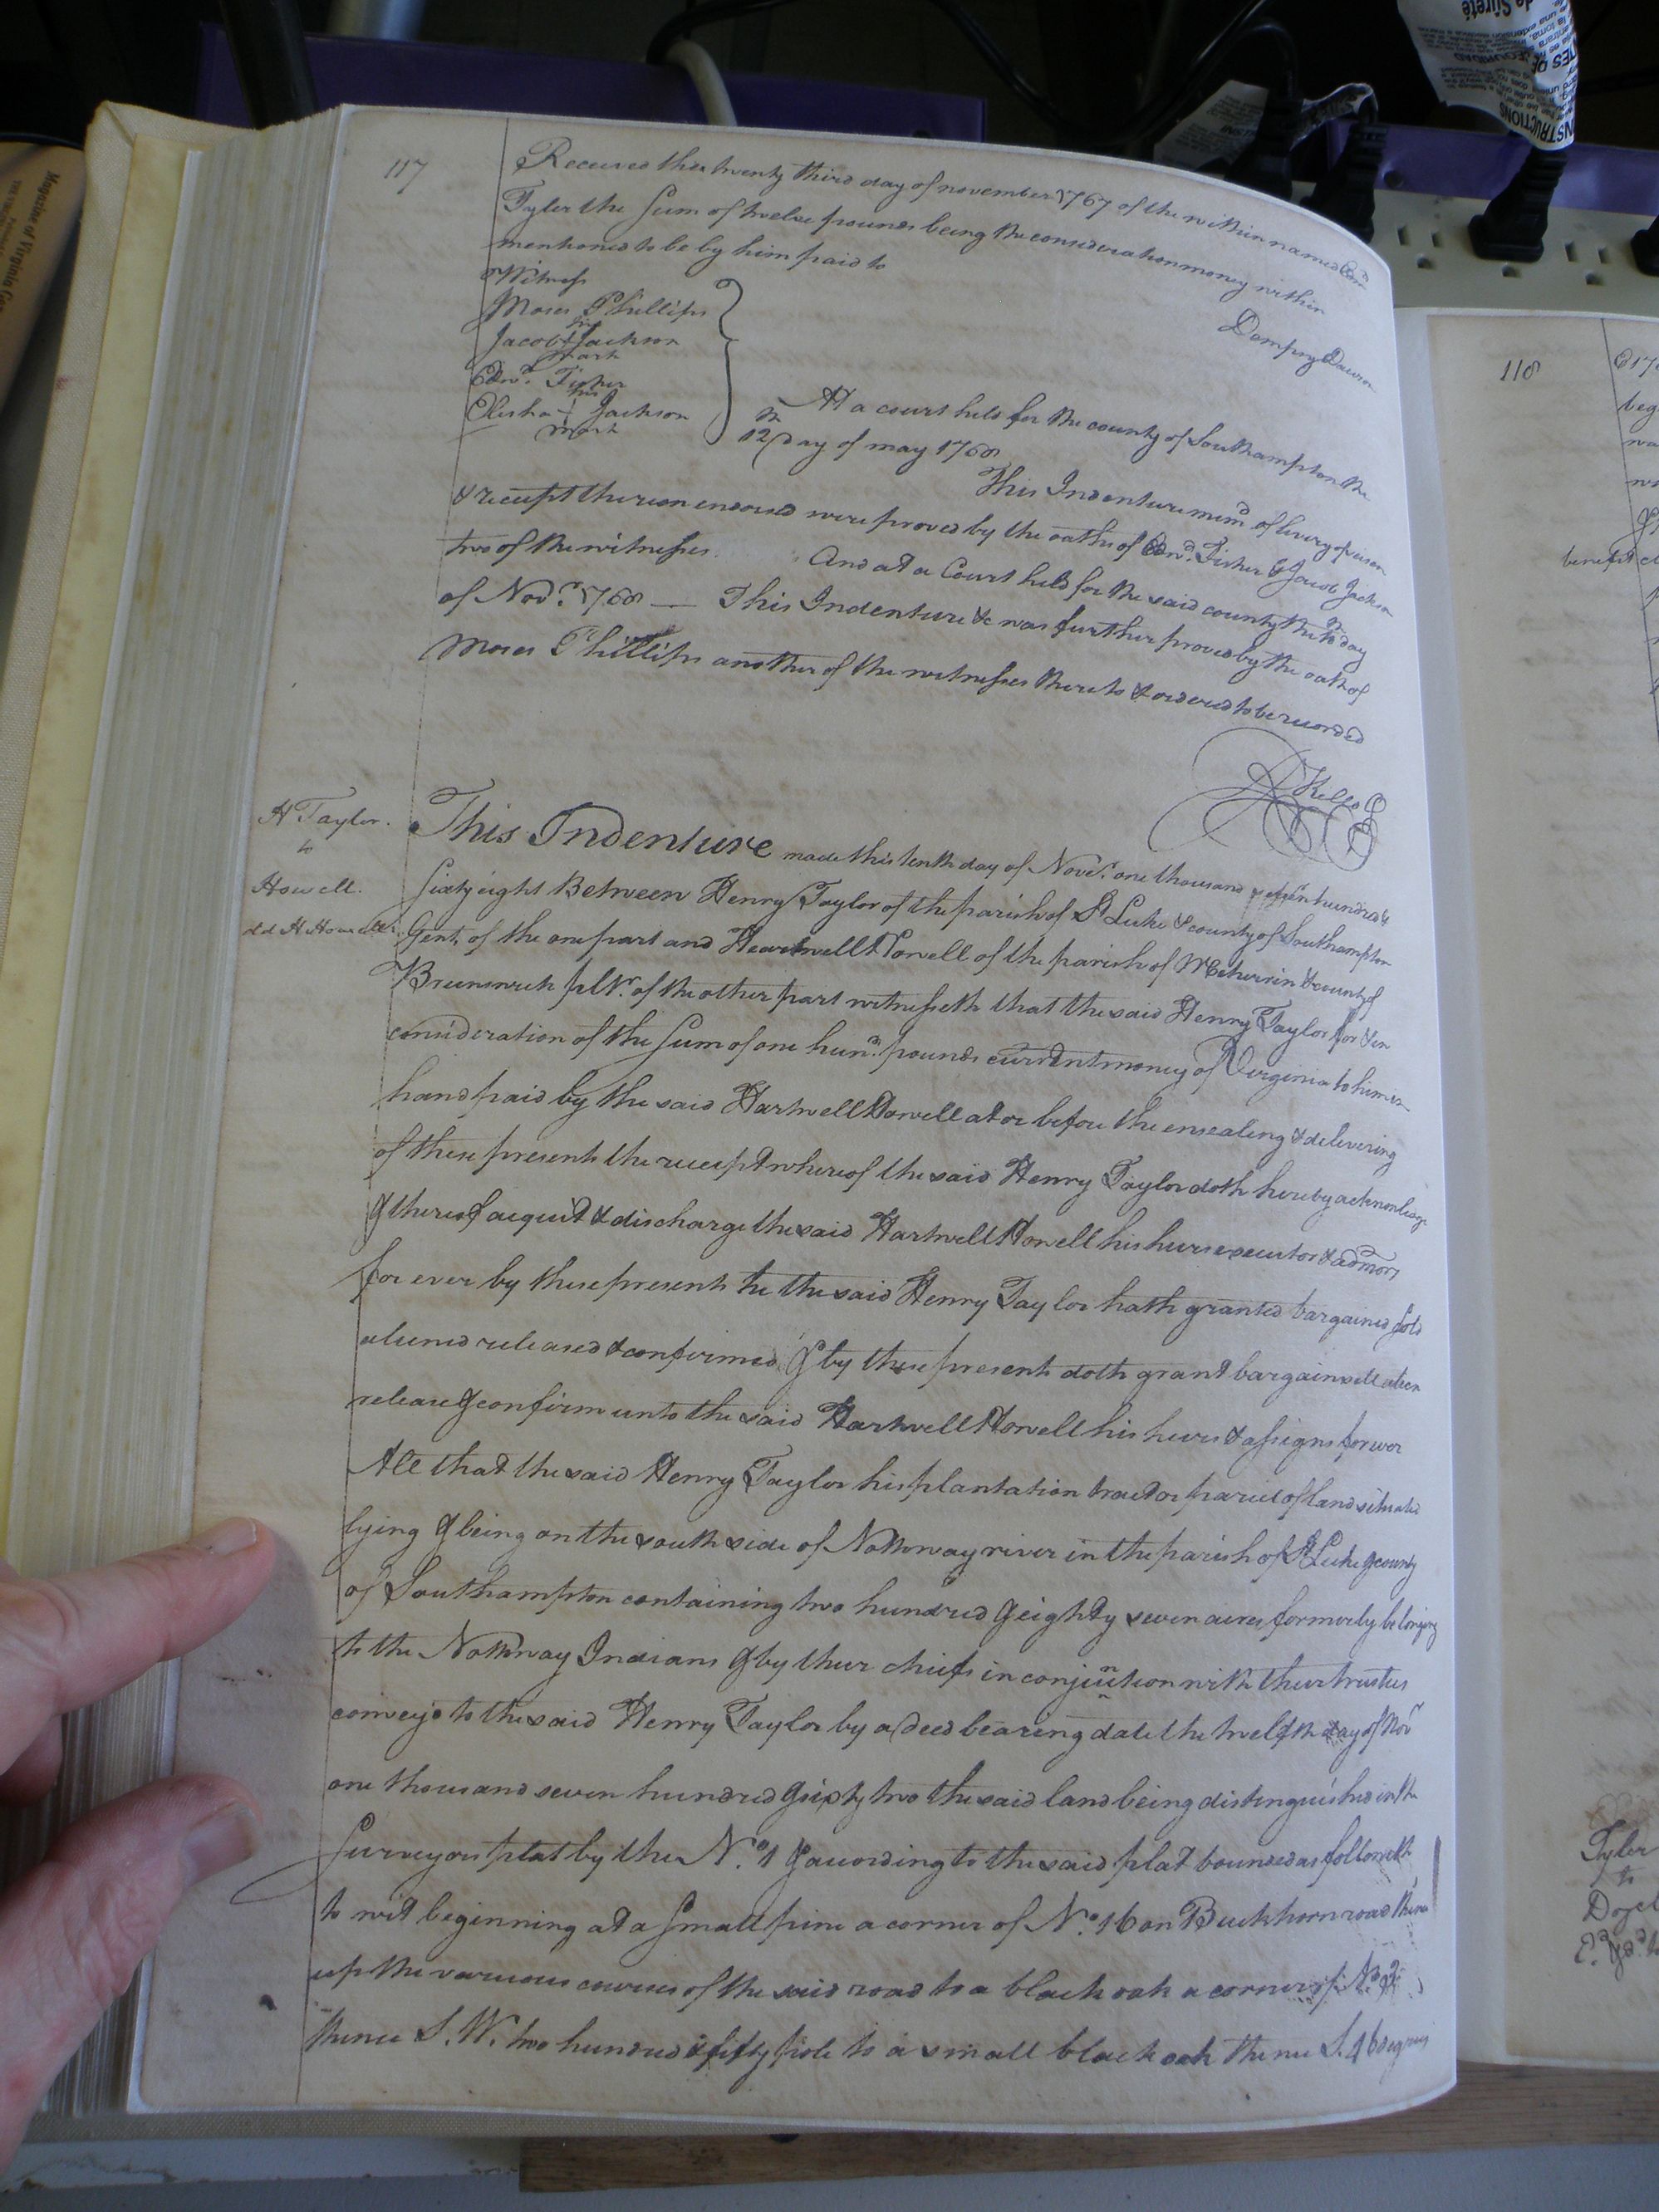 117
Received the twenty third day of november 1767 of the within named Edmd
Tyler the Sum of twelve pounds being the consideration money within
mentioned to be by him paid to
Dempsey Dawson
Witness
Moses Phillips
his
Jacob + Jackson
mark
Edwd. Fisher
his
Elisha + Jackson
mark
At a court held for the county of Southampton the
12th day of may 1768
This Indenture memd. of livery of seisen
& receipt thereon endorsed were proved by the oaths of Edwd. Fisher & Jacob Jackson
two of the witnesses. And at a Court held for the said county the 10th day
of Novr. 1768 — This Indenture &c was further proved by the oath of
Moses Phillips another of the witnesses thereto & ordered to be recorded
R Kello
H Taylor.
to
Howell.
dd H Howell
This Indenture made this tenth day of Novr. one thousand seven hundred &
sixty eight Between Henry Taylor of the parish of St Luke & county of Southampton
Gent. of the one part and Heartwell Howell of the parish of Meherrin & county of
Brunswick pltr. of the other part witnesseth that the said Henry Taylor for & in
consideration of the Sum of one hund. pounds current money of Virginia to him in
hand paid by the said Hartwell Howell at or before the ensealing & delivering
of these presents the receipt whereof the said Henry Taylor doth hereby acknowledge
& thereof acquit & discharge the said Hartwell Howell his heirs executor & admors
for ever by these presents he the said Henry Taylor hath granted bargained sold
aliened released & confirmed & by these present doth grant bargain sell alien
release & confirm unto the said Hartwell Howell his heirs & assigns forever
All that the said Henry Taylor his plantation tract or parcel of land situated
lying & being on the south side of Nottoway river in the parish of St Luke & county
of Southampton containing two hundred & eighty seven acres formerly belonging
to the Nottoway Indians & by their chiefs in conjunction with their trustees
conveyd to the said Henry Taylor by a deed bearing date the twelfth day of Novr
one thousand seven hundred & sixty two the said land being distinguished in the
Surveyors plat by the No. 1 & according to the said plat bounded as followeth
to wit beginning at a small pine a corner of No. 16 on Buckhorn road thence
up the various courses of the said road to a black oak a corner of No. 2
thence S. W. two hundred & fifty pole to a small black oak thence S. 46 degrees
118
beg
benefit
Tyler
to